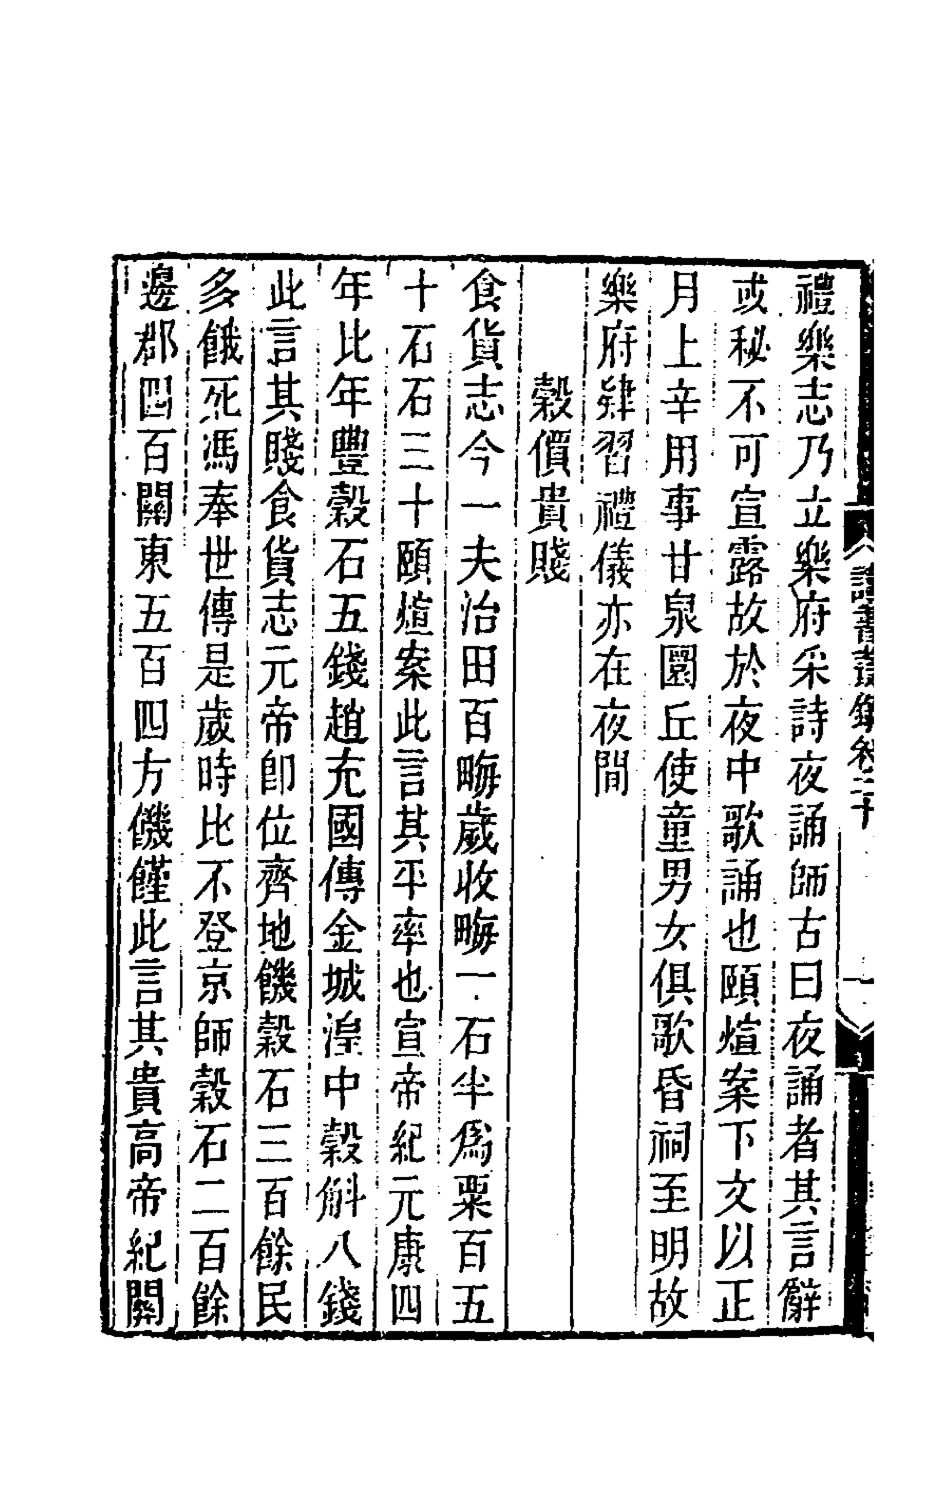 禮樂志乃立樂府采詩夜誦師古曰夜誦者其言辭
或秘不可宣露故於夜中歌誦也頤煊案下文以正
月上辛用事甘泉圜丘使童男女俱歌昏祠至明故
樂府肄習禮儀亦在夜間
穀價貴賤
食貨志今一夫治田百畮歲收畮一石半爲粟百五
十石石三十頤煊案此言其平率也宣帝紀元康四
年比年豐穀石五錢趙充國傳金城湟中穀斛八錢
此言其賤食貨志元帝卽位齊地饑穀石三百餘民
多餓死馮奉世傳是歲時比不登京師穀石二百餘
邊郡四百關東五百四方饑饉此言其貴高帝紀關
讀書叢錄卷二十
一